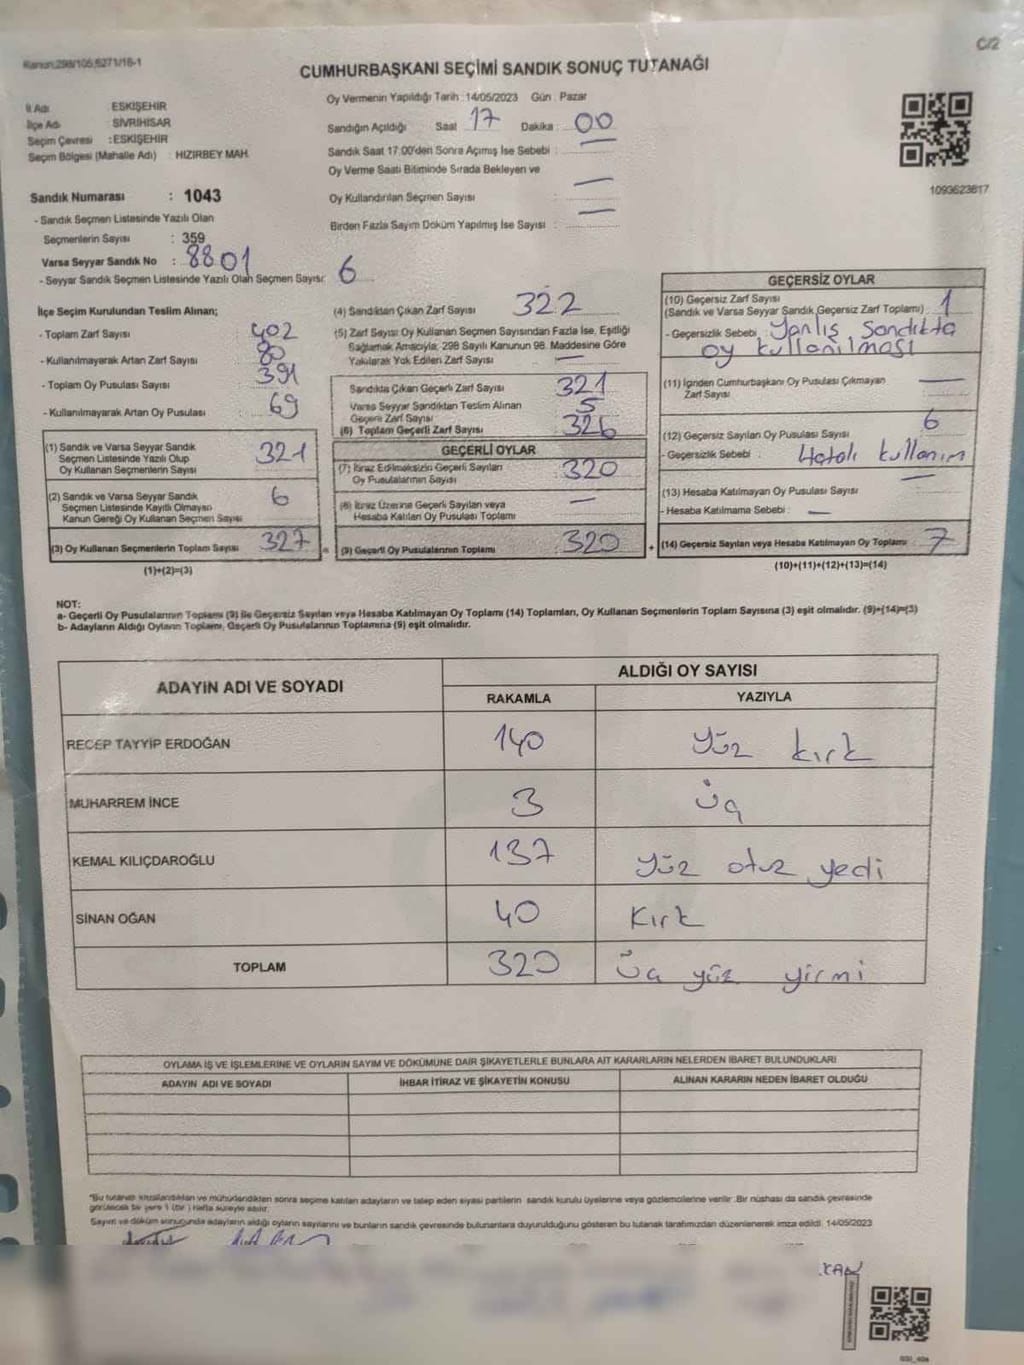 Kanun:298/105,6271/16-1
C/2
CUMHURBAŞKANI SEÇİMİ SANDIK SONUÇ TUTANAĞI
İl Adı : ESKİŞEHİR
İlçe Adı : SİVRİHİSAR
Seçim Çevresi : ESKİŞEHİR
Seçim Bölgesi (Mahalle Adı) : HIZIRBEY MAH.
Oy Vermenin Yapıldığı Tarih : 14/05/2023 Gün : Pazar
Sandığın Açıldığı Saat 17 Dakika : 00
Sandık Saat 17:00'den Sonra Açımış İse Sebebi :
Oy Verme Saati Bitiminde Sırada Bekleyen ve
Oy Kullandırılan Seçmen Sayısı : —
Birden Fazla Sayım Döküm Yapılmış İse Sayısı : —
1093623817
Sandık Numarası : 1043
- Sandık Seçmen Listesinde Yazılı Olan
Seçmenlerin Sayısı : 359
Varsa Seyyar Sandık No : 8801
- Seyyar Sandık Seçmen Listesinde Yazılı Olan Seçmen Sayısı: 6
İlçe Seçim Kurulundan Teslim Alınan;
- Toplam Zarf Sayısı : 402
- Kullanılmayarak Artan Zarf Sayısı : 80
- Toplam Oy Pusulası Sayısı : 391
- Kullanılmayarak Artan Oy Pusulası : 69
(1) Sandık ve Varsa Seyyar Sandık
Seçmen Listesinde Yazılı Olup
Oy Kullanan Seçmenlerin Sayısı 321
(2) Sandık ve Varsa Seyyar Sandık
Seçmen Listesinde Kayıtlı Olmayan
Kanun Gereği Oy Kullanan Seçmen Sayısı 6
(3) Oy Kullanan Seçmenlerin Toplam Sayısı 327
(1)+(2)=(3)
(4) Sandıktan Çıkan Zarf Sayısı 322
(5) Zarf Sayısı Oy Kullanan Seçmen Sayısından Fazla İse, Eşitliği
Sağlamak Amacıyla; 298 Sayılı Kanunun 98. Maddesine Göre
Yakılarak Yok Edilen Zarf Sayısı —
Sandıkta Çıkan Geçerli Zarf Sayısı 321
Varsa Seyyar Sandıktan Teslim Alınan
Geçerli Zarf Sayısı 5
(6) Toplam Geçerli Zarf Sayısı 326
GEÇERLİ OYLAR
(7) İtiraz Edilmeksizin Geçerli Sayılan
Oy Pusulalarının Sayısı 320
(8) İtiraz Üzerine Geçerli Sayılan veya
Hesaba Katılan Oy Pusulası Toplamı —
= (9) Geçerli Oy Pusulalarının Toplamı 320
GEÇERSİZ OYLAR
(10) Geçersiz Zarf Sayısı
(Sandık ve Varsa Seyyar Sandık Geçersiz Zarf Toplamı) : 1
- Geçersizlik Sebebi : Yanlış Sandıkta
oy kullanılması
(11) İçinden Cumhurbaşkanı Oy Pusulası Çıkmayan
Zarf Sayısı —
(12) Geçersiz Sayılan Oy Pusulası Sayısı 6
- Geçersizlik Sebebi : Hatalı kullanım
(13) Hesaba Katılmayan Oy Pusulası Sayısı —
- Hesaba Katılmama Sebebi : —
+ (14) Geçersiz Sayılan veya Hesaba Katılmayan Oy Toplamı 7
(10)+(11)+(12)+(13)=(14)
NOT:
a- Geçerli Oy Pusulalarının Toplamı (9) ile Geçersiz Sayılan veya Hesaba Katılmayan Oy Toplamı (14) Toplamları, Oy Kullanan Seçmenlerin Toplam Sayısına (3) eşit olmalıdır. (9)+(14)=(3)
b- Adayların Aldığı Oyların Toplamı, Geçerli Oy Pusulalarının Toplamına (9) eşit olmalıdır.
ADAYIN ADI VE SOYADI
ALDIĞI OY SAYISI
RAKAMLA YAZIYLA
RECEP TAYYİP ERDOĞAN 140 Yüz kırk
MUHARREM İNCE 3 üç
KEMAL KILIÇDAROĞLU 137 Yüz otuz yedi
SİNAN OĞAN 40 Kırk
TOPLAM 320 Üç yüz yirmi
OYLAMA İŞ VE İŞLEMLERİNE VE OYLARIN SAYIM VE DÖKÜMÜNE DAİR ŞİKAYETLERLE BUNLARA AİT KARARLARIN NELERDEN İBARET BULUNDUKLARI
ADAYIN ADI VE SOYADI İHBAR İTİRAZ VE ŞİKAYETİN KONUSU ALINAN KARARIN NEDEN İBARET OLDUĞU
*Bu tutanak imzalandıktan ve mühürlendikten sonra seçime katılan adayların ve talep eden siyasi partilerin sandık kurulu üyelerine veya gözlemcilerine verilir. Bir nüshası da sandık çevresinde
görülecek bir yere 1 (bir) hafta süreyle asılır.
Sayım ve döküm sonucunda adayların aldığı oyların sayılarını ve bunların sandık çevresinde bulunanlara duyurulduğunu gösteren bu tutanak tarafımızdan düzenlenerek imza edildi. 14/05/2023